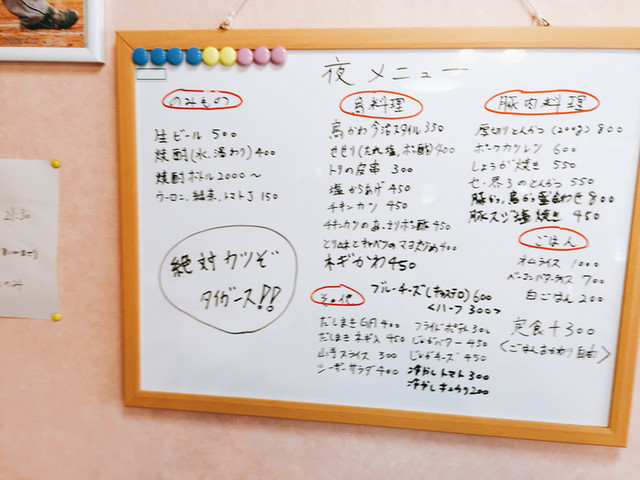 夜メニュー
のみもの
生ビール 500
焼酎(水,湯わり) 400
焼酎ボトル 2000〜
ウーロン,緑茶,トマトJ 150
絶対カツぞ
タイガース!!
鳥料理
鳥かわ今治スタイル 350
せせり(たれ,塩,ポン酢) 400
トリの皮串 300
塩からあげ 450
チキンカツ 450
チキンカツのあっさりポン酢 450
とり味とキャベツのマヨ炒め 400
ネギかわ 450
その他
ブルーチーズ( ) 600
<ハーフ 300>
だしまき 400
だしまきネギ入 450
山芋スライス 300
シーザーサラダ 400
フライドポテト 300
じゃがバター 450
じゃがチーズ 450
冷やしトマト 300
冷やしキュウリ 200
豚肉料理
厚切りとんかつ(200g) 800
ポークカツレツ 600
しょうが焼き 550
とんかつ 550
豚かつ,鳥かつ盛合わせ 800
豚スジ塩焼き 450
ごはん
オムライス 1000
ベーコンバターライス 700
白ごはん 200
定食+300
<ごはんおかわり自由>